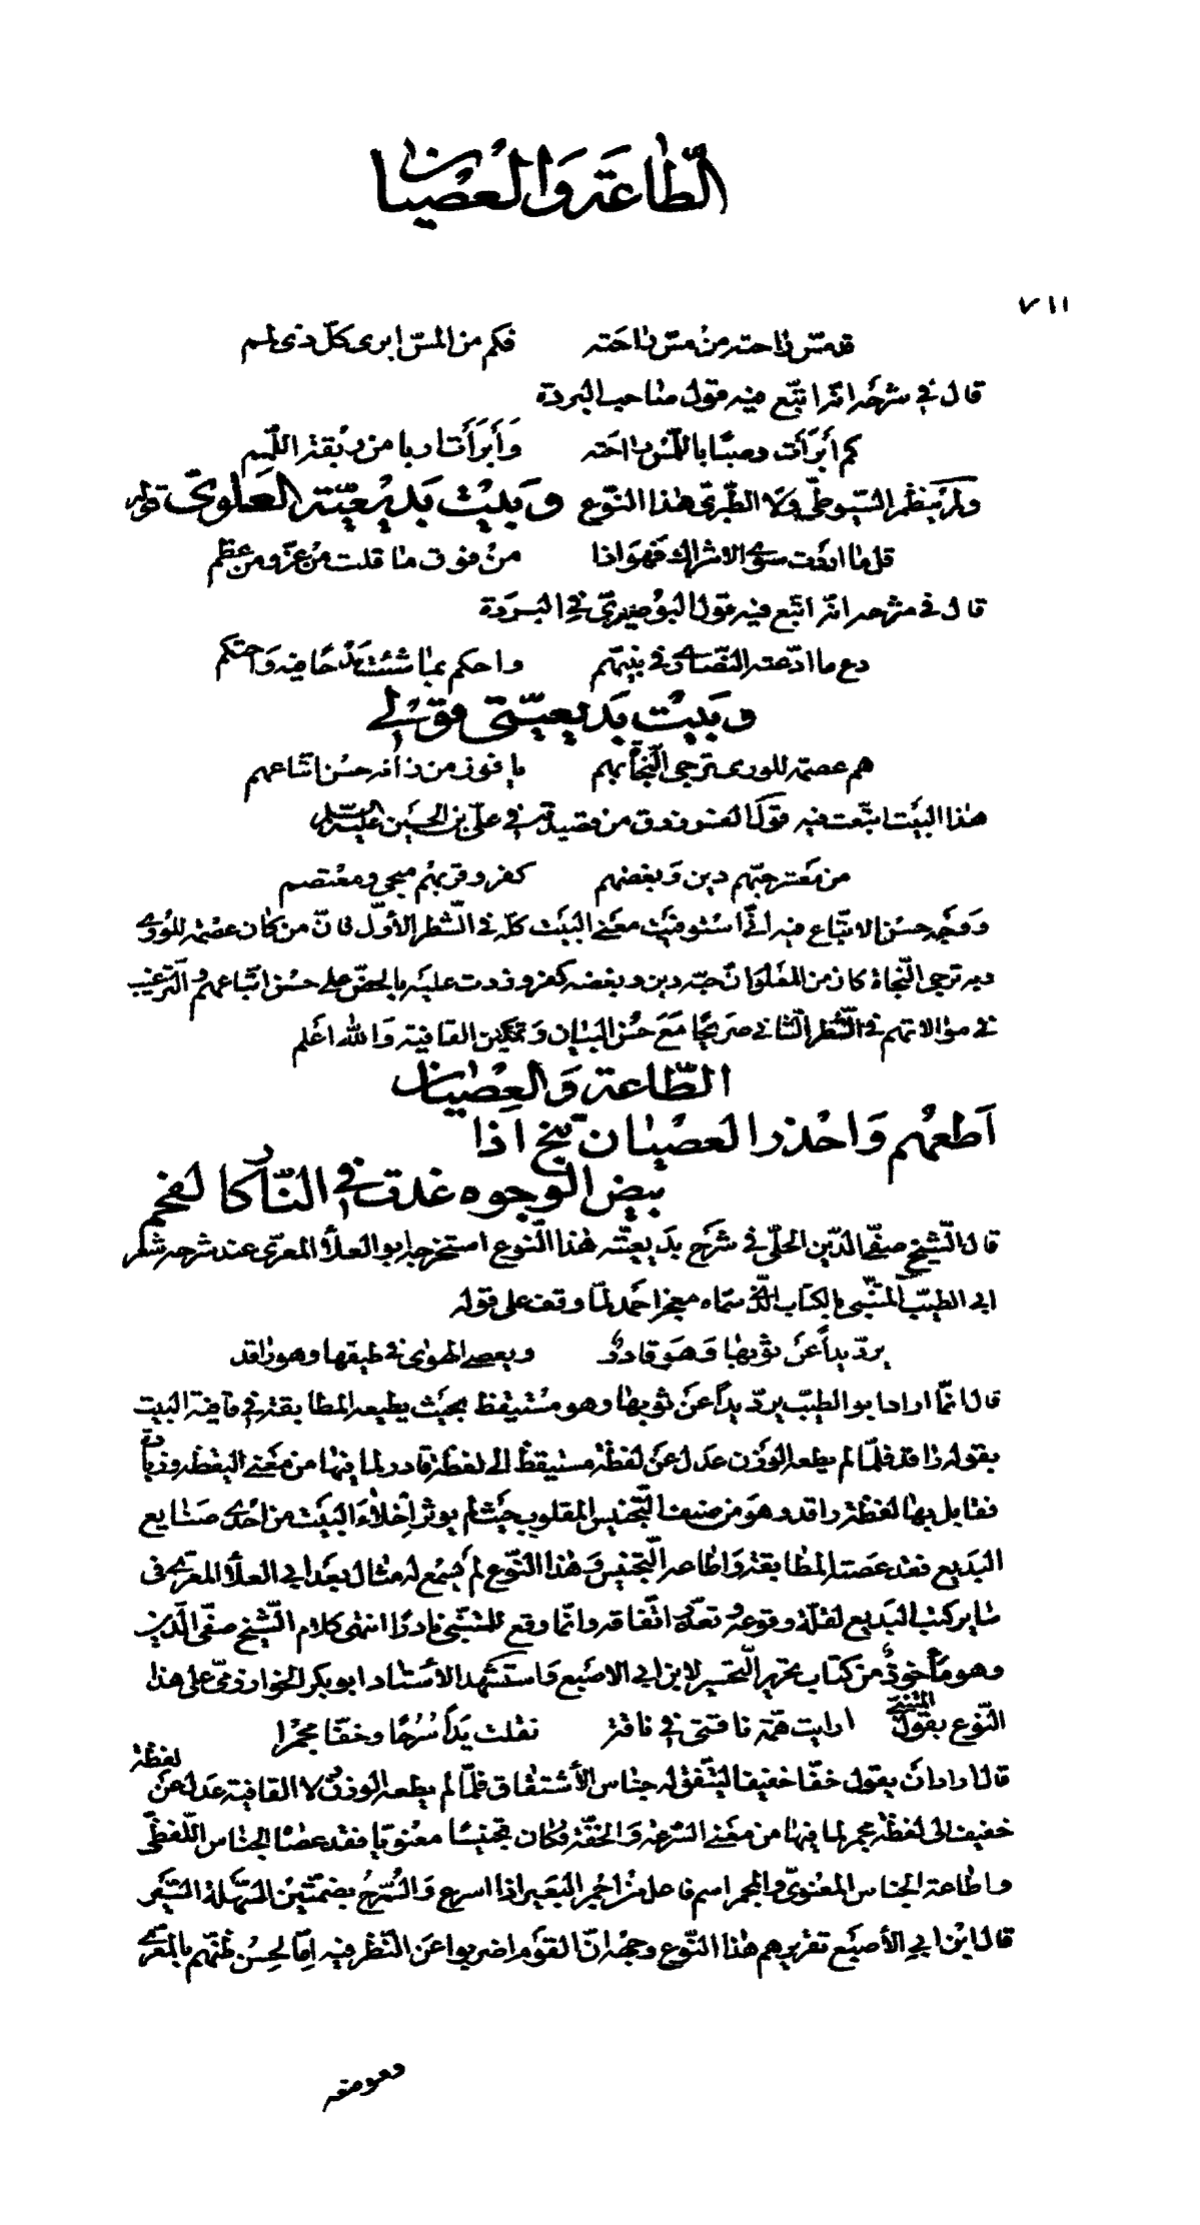 الطاعة والعصيان
٧١١
قد مسّ راحته من مسّ راحته فكم من المسّ ابرى كلّ ذى لمم
قال في شرحه انّه اتبّع فيه قول صاحب البردة
كم أبرَأَت وصبًا باللّمس راحته وَأَبرَأَت اربا من ربقة اللّمم
ولم ينظم السّيوطيّ ولا الطّبرىّ هذا النّوع وبيت بديعيّة العلوىّ قوله
قل ما اردت سوى الاشراك فهو اذا من فوق ما قلت من عزّ ومن عظم
قال في شرحه انّه اتّبع فيه قول البوصيرىّ في البردة
دع ما ادّعته النّصارى في نبيّهم واحكم بما شئت مدحًا فيه واحتكم
وبيت بديعيّتى قولى
هم عصمة للورى ترجى النّجاة بهم يا فوز من زانه حسن اتّباعهم
هذا البيت اتّبعت فيه قول الفرزدق من قصيدته في علىّ بن الحسين عليه السّلام
من معشر حبّهم دين وبغضهم كفر وقربهم منجى ومعتصم
ووجه حسن الاتّباع فيه انّى استوفيت معنى البيت كلّه في الشّطر الأوّل فانّ من كان عصمة للورى
وبه ترجى النّجاة كان من المعلوم انّ حبّه دين وبغضه كفر وزدت عليه بالحضّ على حسن اتّباعهم والتّرغيب
في موالاتهم في الشّطر الثّانى صريحًا مع حسن البيان وتمكين القافية والله اعلم
الطّاعة والعصيان
اطعهم واحذر العصيان تنج اذا
بيض الوجوه غدت في النّار كالفحم
قال الشّيخ صفىّ الدّين الحلّى في شرح بديعيّته هذا النّوع استخرجه ابو العلاء المعرّى عند شرحه شعر
ابى الطيّب المتنبّى بالكتاب الّذى سمّاه معجز احمد لمّا وقف على قوله
يردّ يداً عن ثوبها وهو قادر ويعصى الهوى في طيفها وهو راقد
قال انّما اراد ابو الطيّب يردّ يداً عن ثوبها وهو مستيقظ بحيث يطيعه المطابقة في قافية البيت
بقوله راقد فلمّا لم يطعه الوزن عدل عن لفظة مستيقظ الى لفظة قادر لما فيها من معنى اليقظة وزيادة
فقابل بها لفظة راقد وهو من صنف التّجنيس المقلوب حيث لم يوثر اخلاء البيت من احدى صنايع
البديع فقد عصته المطابقة واطاعه التّجنيس وهذا النّوع لم يسمع له مثال بعد ابى العلاء المعرّى في
ساير كتب البديع لقلّة وقوعه وتعذّر اتّفاقه وانّما وقع للمتنبّى نادرًا انتهى كلام الشّيخ صفىّ الدّين
وهو مأخوذ من كتاب تحرير التّحبير لابن ابى الاصبع واستشهد الأستاد ابو بكر الخوارزمىّ على هذا
النّوع بقول المتنبّى ارايت همّة ناقتى في ناقة نقلت يداً سرحًا وخفّا مجمرا
قال اراد ان يقول خفّا خفيفا ليتّفق له جناس الأشتقاق فلمّا لم يطعه الوزن ولا القافية عدل عن لفظة
خفيف الى لفظة مجمر لما فيها من معنى السّرعة والخفّة فكان تجنيسًا معنويّا فقد عصاه الجناس اللّفظىّ
واطاعه الجناس المعنوىّ والمجمر اسم فاعل من اجمر البعير اذا اسرع والسّرح بضمّتين السّهلة السّير
قال ابن ابى الأصبع تقريرهم هذا النّوع وجهه انّ القوم اضربوا عن النّظر فيه امّا لحسن ظنّهم بالمعرّى